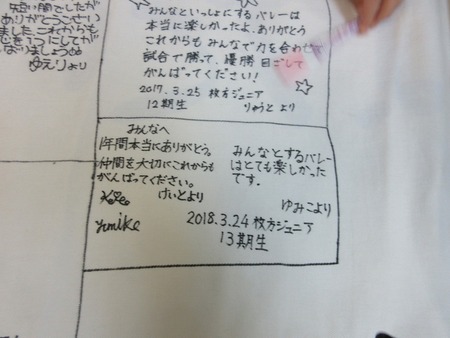 短い間でしたが
ありがとうござい
ました。これからも
心を1つにしてが
ばりましょうね
ゆえりより
みんなといっしょにするバレーは
本当に楽しかったよ。ありがとう
これからもみんなで力を合わせて
試合で勝って、優勝目ざして
がんばってください!
2017.3.25 枚方ジュニア
12期生 りゅうと より
みんなへ
1年間本当にありがとう。
仲間を大切にこれからも
がんばってください。
けいとより
みんなとするバレー
はとても楽しかった
です。
ゆみこより
yumike
2018.3.24 枚方ジュニア
13期生